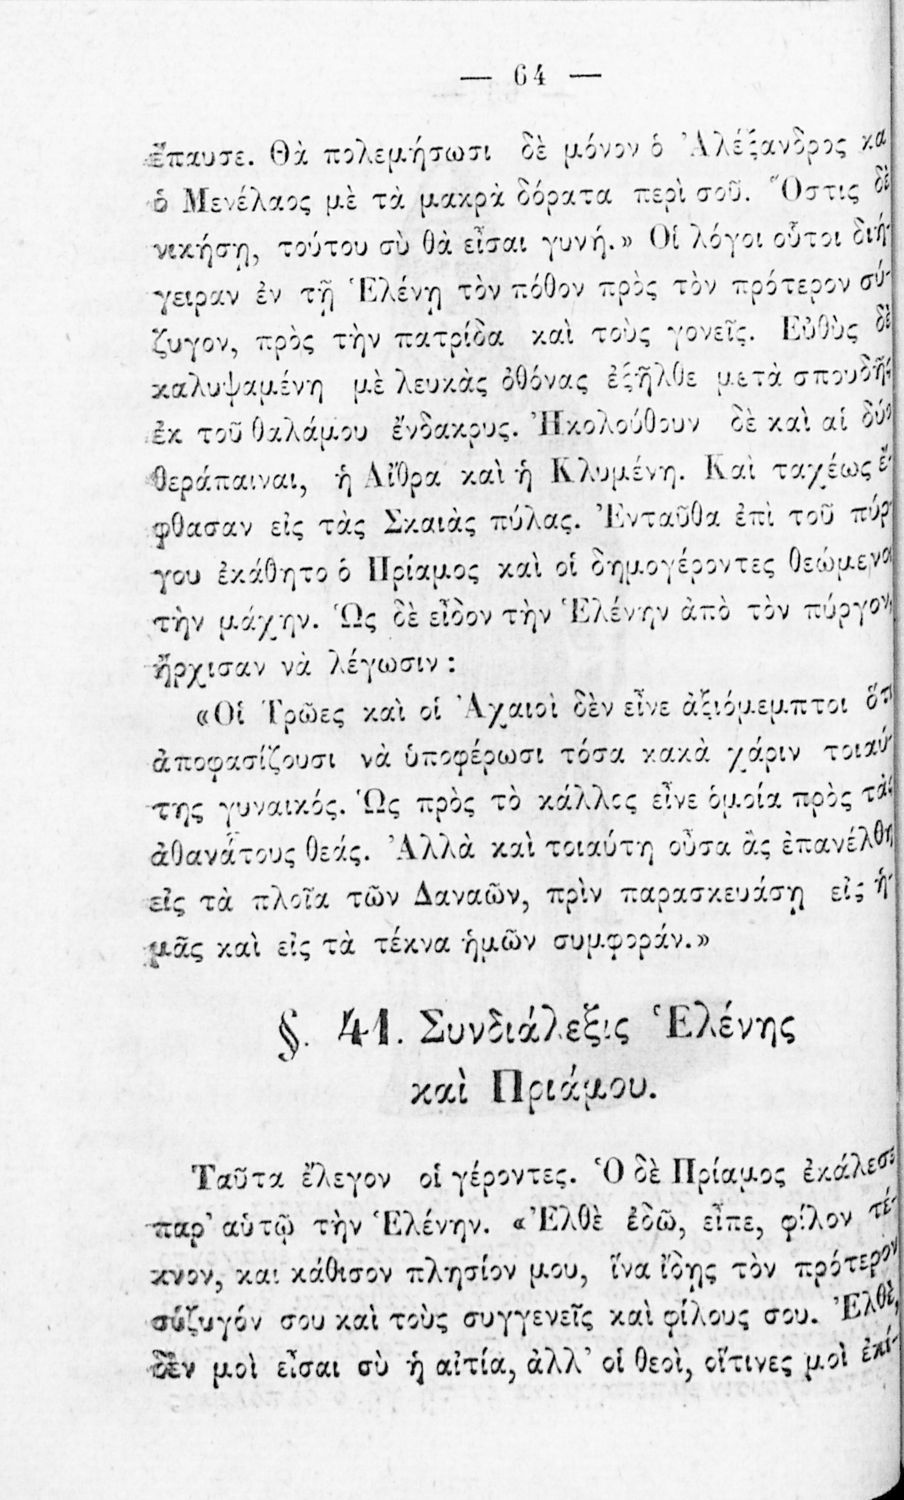 — 64 —
ἔπαυσε. Θὰ πολεμήσωσι δὲ μόνον ὁ Ἀλέξανδρος κα
ὁ Μενέλαος μὲ τὰ μακρὰ δόρατα περὶ σοῦ. Ὅστις δὲ
νικήσῃ, τούτου σὺ θὰ εἶσαι γυνή.» Οἱ λόγοι οὗτοι διή-
γειραν ἐν τῇ Ἑλένῃ τὸν πόθον πρὸς τὸν πρότερον σύ-
ζυγον, πρὸς τὴν πατρίδα καὶ τοὺς γονεῖς. Εὐθὺς δὲ
καλυψαμένη μὲ λευκὰς ὀθόνας ἐξῆλθε μετὰ σπουδῆς
ἐκ τοῦ θαλάμου ἔνδακρυς. Ἠκολούθουν δὲ καὶ αἱ δύο
θεράπαιναι, ἡ Αἴθρα καὶ ἡ Κλυμένη. Καὶ ταχέως ἔ-
φθασαν εἰς τὰς Σκαιὰς πύλας. Ἐνταῦθα ἐπὶ τοῦ πύρ-
γου ἐκάθητο ὁ Πρίαμος καὶ οἱ δημογέροντες θεώμενοι
τὴν μάχην. Ὡς δὲ εἶδον τὴν Ἑλένην ἀπὸ τὸν πύργον,
ἤρχισαν νὰ λέγωσιν :
«Οἱ Τρῶες καὶ οἱ Ἀχαιοὶ δὲν εἶνε ἀξιόμεμπτοι ὅτι
ἀποφασίζουσι νὰ ὑποφέρωσι τόσα κακὰ χάριν τοιαύ-
της γυναικός. Ὡς πρὸς τὸ κάλλος εἶνε ὁμοία πρὸς τὰς
ἀθανάτους θεάς. Ἀλλὰ καὶ τοιαύτη οὖσα ἂς ἐπανέλθῃ
εἰς τὰ πλοῖα τῶν Δαναῶν, πρὶν παρασκευάσῃ εἰς ἡ-
μᾶς καὶ εἰς τὰ τέκνα ἡμῶν συμφοράν.»
§. 41. Συνδιάλεξις Ἑλένης
καὶ Πριάμου.
Ταῦτα ἔλεγον οἱ γέροντες. Ὁ δὲ Πρίαμος ἐκάλεσε
παρ' αὑτῷ τὴν Ἑλένην. «Ἐλθὲ ἐδῶ, εἶπε, φίλον τέ-
κνον, και κάθισον πλησίον μου, ἵνα ἴδῃς τὸν πρότερον
σύζυγόν σου καὶ τοὺς συγγενεῖς καὶ φίλους σου. Ἐλθὲ,
δὲν μοὶ εἶσαι σὺ ἡ αἰτία, ἀλλ' οἱ θεοὶ, οἵτινες μοὶ ἐκί-